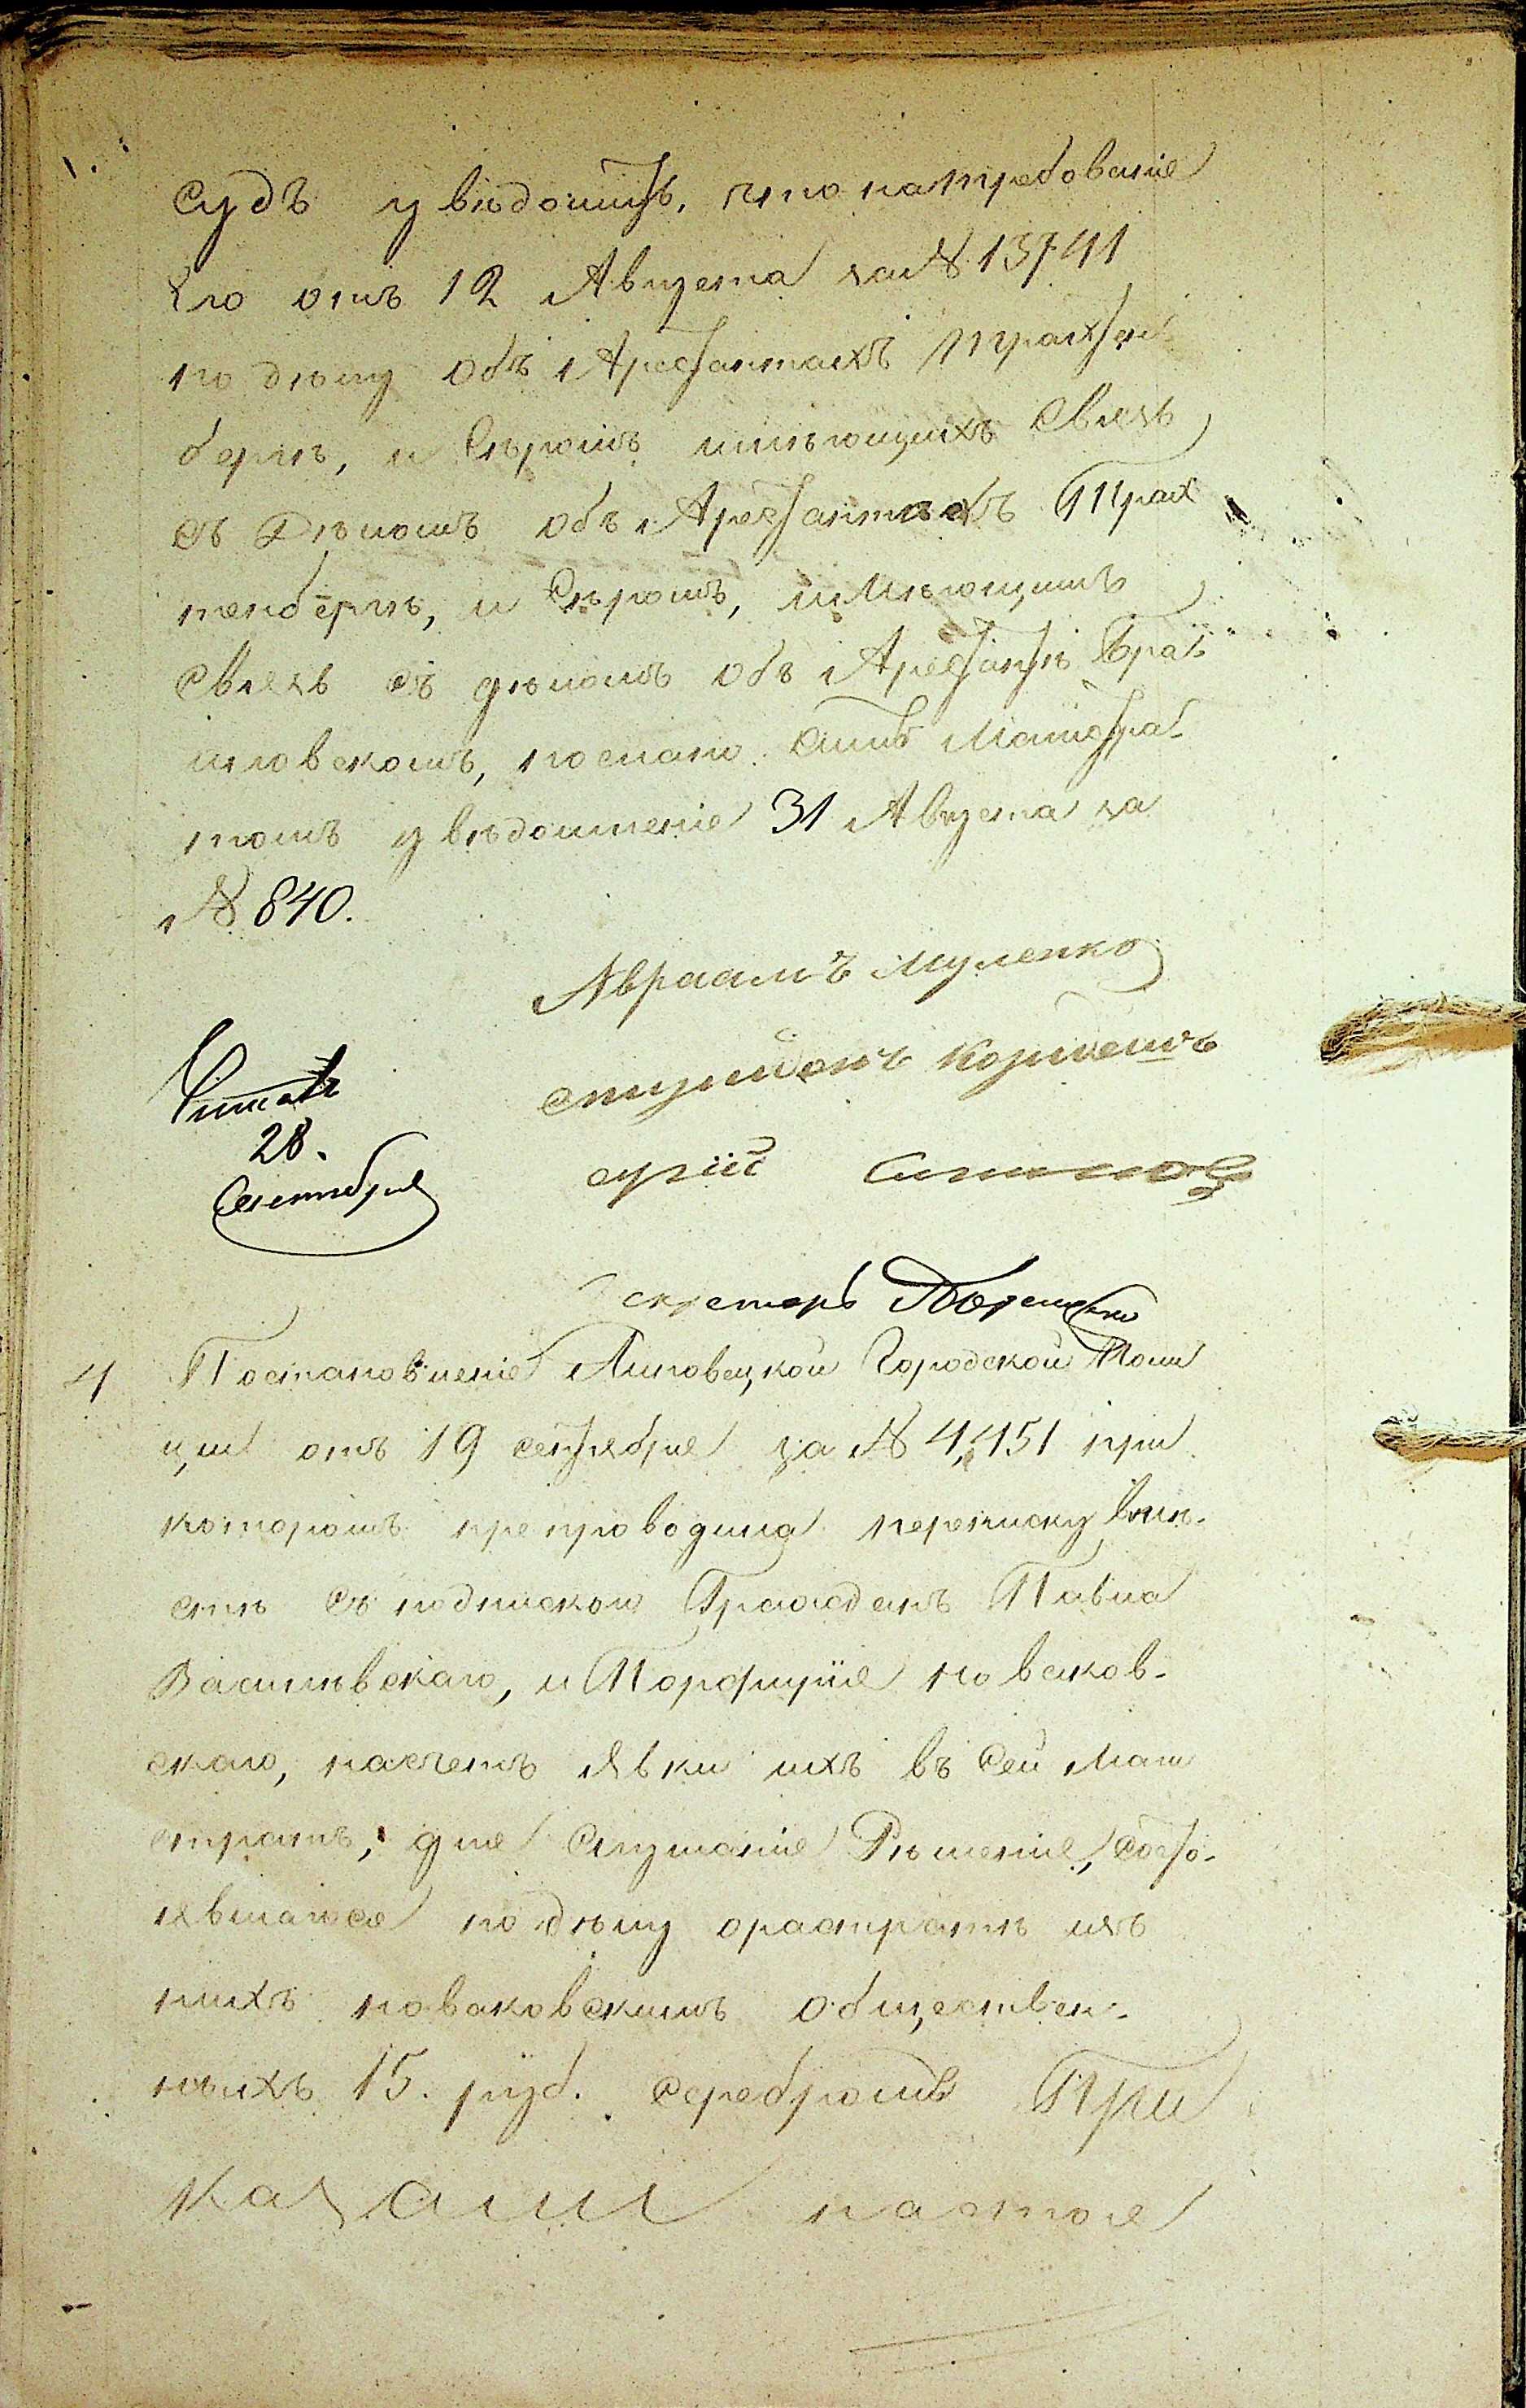 судъ увѣдомить, что на требованіе
Его отъ 12 Августа за № 13741
по дѣлу объ Арестантахъ Трахтен
бергѣ, и Сѣромъ имѣющихъ Связь
съ Дѣломъ объ Арестантахъ Трах
тенбергѣ, и Сѣромъ, имѣющимъ
Связь съ дѣломъ объ Арестантѣ Бра-
иловскомъ, послано Симъ Магистра-
томъ увѣдомленіе 31 Августа за
№ 840.
Авраамъ
Читалъ
28.
Сентября
Секретарь
4 Постановленіе Липовецкой Городской Поли
ціи отъ 19 сентября за № 4,451 при
которомъ препроводила переписку вмѣ-
стѣ съ подпискою Гражданъ Павла
Василевскаго, и Порфирія Новаков-
скаго, насчетъ Явки ихъ въ Сей Маги
стратъ, для Слушанія Рѣшенія, состо-
явшагося по дѣлу о растратѣ изъ
нихъ Новаковскимъ обществен-
ныхъ 15. руб. серебромъ При
казали настоя